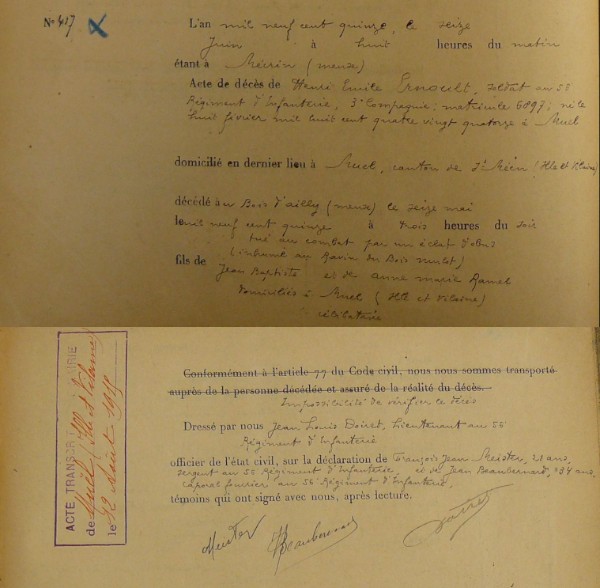 N° 417
L'an mil neuf cent quinze, le seize
Juin à huit heures du matin
étant à Mécrin (meuse)
Acte de décès de Henri Emile Ernoult, soldat au 56
Régiment d'Infanterie, 3e Compagnie; matricule 6897; né le
huit février mil huit cent quatre vingt quatorze à Muel
domicilié en dernier lieu à Muel, canton de St Méen (Ille et Vilaine)
décédé au Bois d'ailly (meuse) le seize mai
le mil neuf cent quinze à trois heures du soir
tué au combat par un éclat d'obus
(inhumé au Ravin du Bois mulot)
fils de Jean Baptiste et de anne marie Ramel
domiciliés à Muel (Ille et Vilaine)
célibataire
Conformément à l'article 77 du Code civil, nous nous sommes transporté
auprès de la personne décédée et assuré de la réalité du décès.
Impossibilité de vérifier le décès
Dressé par nous Jean Louis Boiret, Lieutenant au 56
Régiment d'Infanterie
officier de l'état civil, sur la déclaration de François Jean Meister, 21 ans,
sergent au 56 Régiment d'Infanterie, et de Jean Beaubernard, 34 ans,
caporal fourrier au 56 Régiment d'Infanterie.
témoins qui ont signé avec nous, après lecture.
Meister Beaubernard Boiret
ACTE TRANSCRIT MAIRIE
de Muel, Ille et Vilaine
le 1915